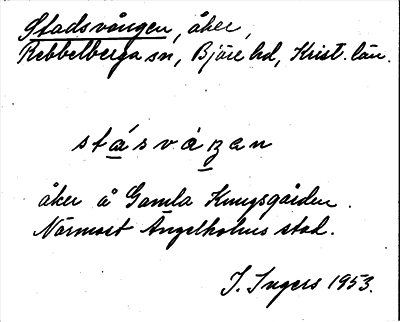 Stadsvången, åker,
Rebbelberga sn, Bjäre hd, Krist. län.
stá̱sváꞑan
åker å Gamla Kungsgården.
Närmast Ängelholms stad.
I. Ingers 1953.